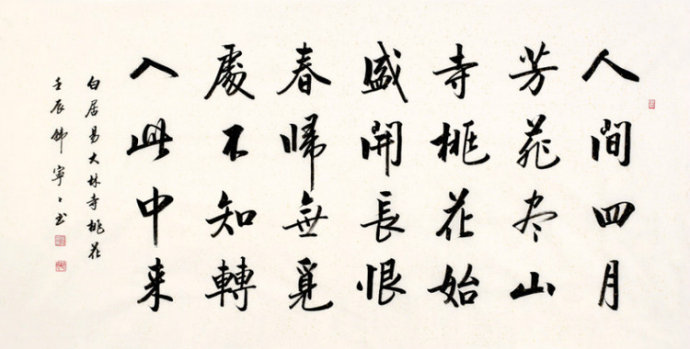 人間四月
芳菲尽山
寺桃花始
盛開長恨
春歸無覓
處不知轉
入此中来
白居易大林寺桃花
壬辰 寧寧书